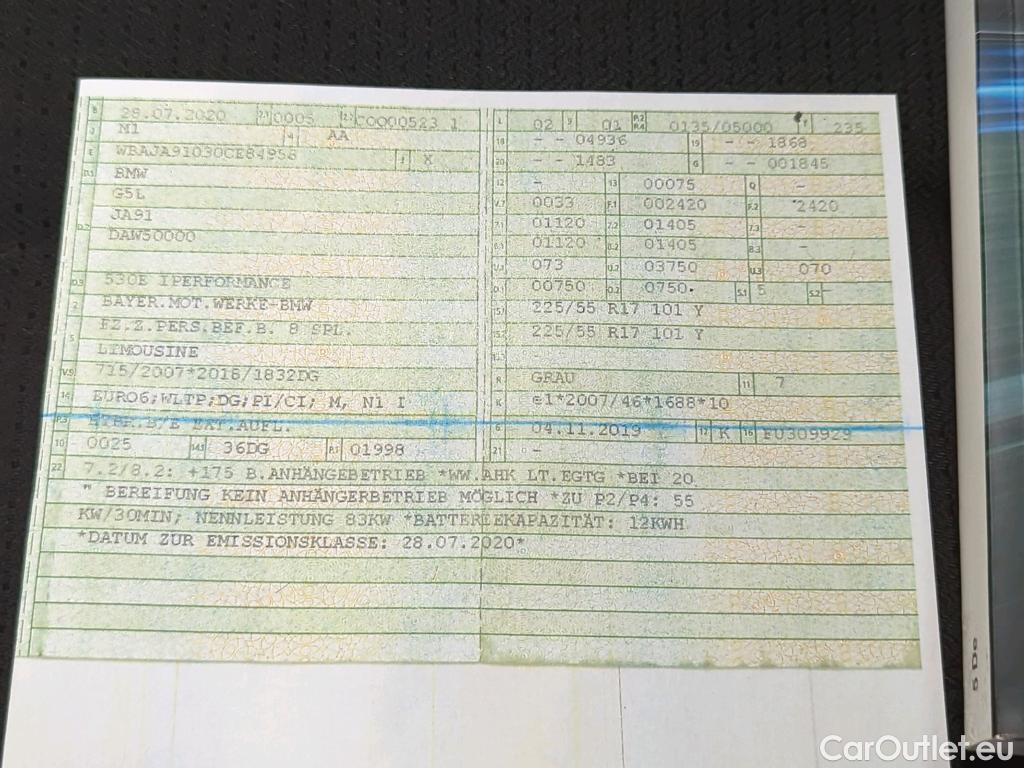 B 29.07.2020 2.1 0005 2.2 COQ00523 1
J M1 4 AA
E WBAJA91030CE84956 3 X
D.1 BMW
D.2 G5L
JA91
DAW50000
D.3 530E IPERFORMANCE
2 BAYER.MOT.WERKE-BMW
5 FZ.Z.PERS.BEF.B. 8 SPL.
LIMOUSINE
V.9 715/2007*2018/1832DG
14 EURO6;WLTP;DG;PI/CI; M, N1 I
P.3 HYBR.B/E EXT.AUFL.
10 0025 14.1 36DG P.1 01998
L 02 9 01 P.2 P.4 0135/05000 T 235
18 - - 04936 19 - - 1868
20 - - 1483 G - - 001845
12 - 13 00075 Q -
V.7 0033 F.1 002420 F.2 2420
7.1 01120 7.2 01405 7.3 -
8.1 01120 8.2 01405 8.3 -
U.1 073 U.2 03750 U.3 070
O.1 00750 O.2 0750 S.1 5 S.2 -
15.1 225/55 R17 101 Y
15.2 225/55 R17 101 Y
15.3 -
R GRAU 11 7
K e1*2007/46*1688*10
6 04.11.2019 17 K 16 FU309929
21 -
22 7.2/8.2: +175 B.ANHÄNGEBETRIEB *WW.AHK LT.EGTG *BEI 20
" BEREIFUNG KEIN ANHÄNGERBETRIEB MÖGLICH *ZU P2/P4: 55
KW/30MIN; NENNLEISTUNG 83KW *BATTERIEKAPAZITÄT: 12KWH
*DATUM ZUR EMISSIONSKLASSE: 28.07.2020*
5 De
CarOutlet.eu